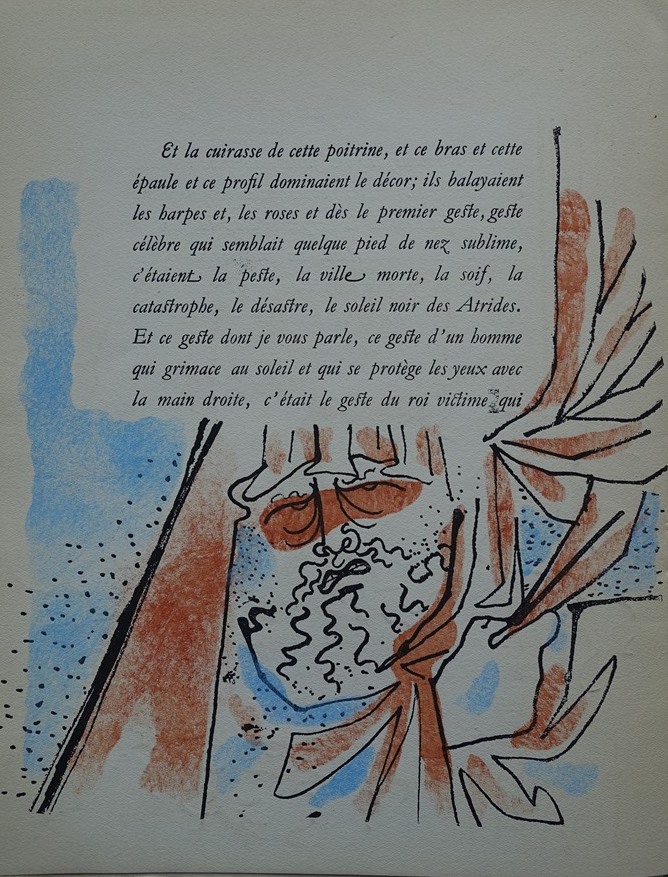 Et la cuirasse de cette poitrine, et ce bras et cette
épaule et ce profil dominaient le décor; ils balayaient
les harpes et, les roses et dès le premier geste, geste
célèbre qui semblait quelque pied de nez sublime,
c'étaient la peste, la ville morte, la soif, la
catastrophe, le désastre, le soleil noir des Atrides.
Et ce geste dont je vous parle, ce geste d'un homme
qui grimace au soleil et qui se protège les yeux avec
la main droite, c'était le geste du roi victime qui